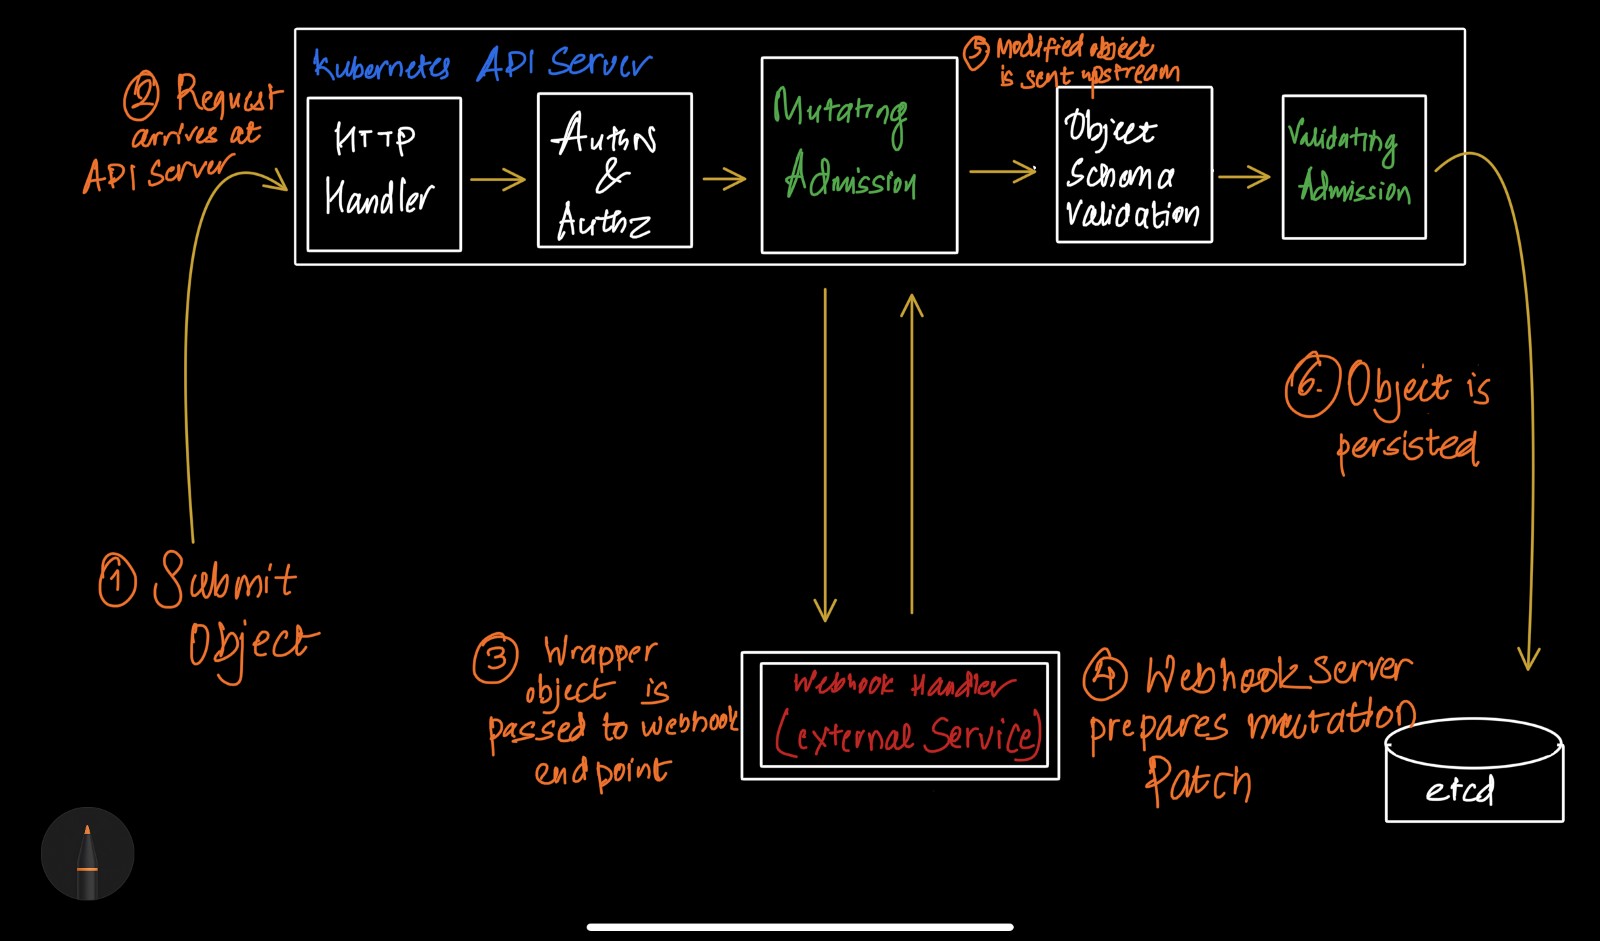 Kubernetes API Server
② Request
arrives at
API Server
HTTP
Handler
AuthN
&
AuthZ
Mutating
Admission
⑤ Modified object
is sent upstream
Object
Schema
Validation
Validating
Admission
① Submit
Object
③ Wrapper
object is
passed to webhook
endpoint
Webhook Handler
(external Service)
④ Webhook Server
prepares mutation
Patch
⑥. Object is
persisted
etcd